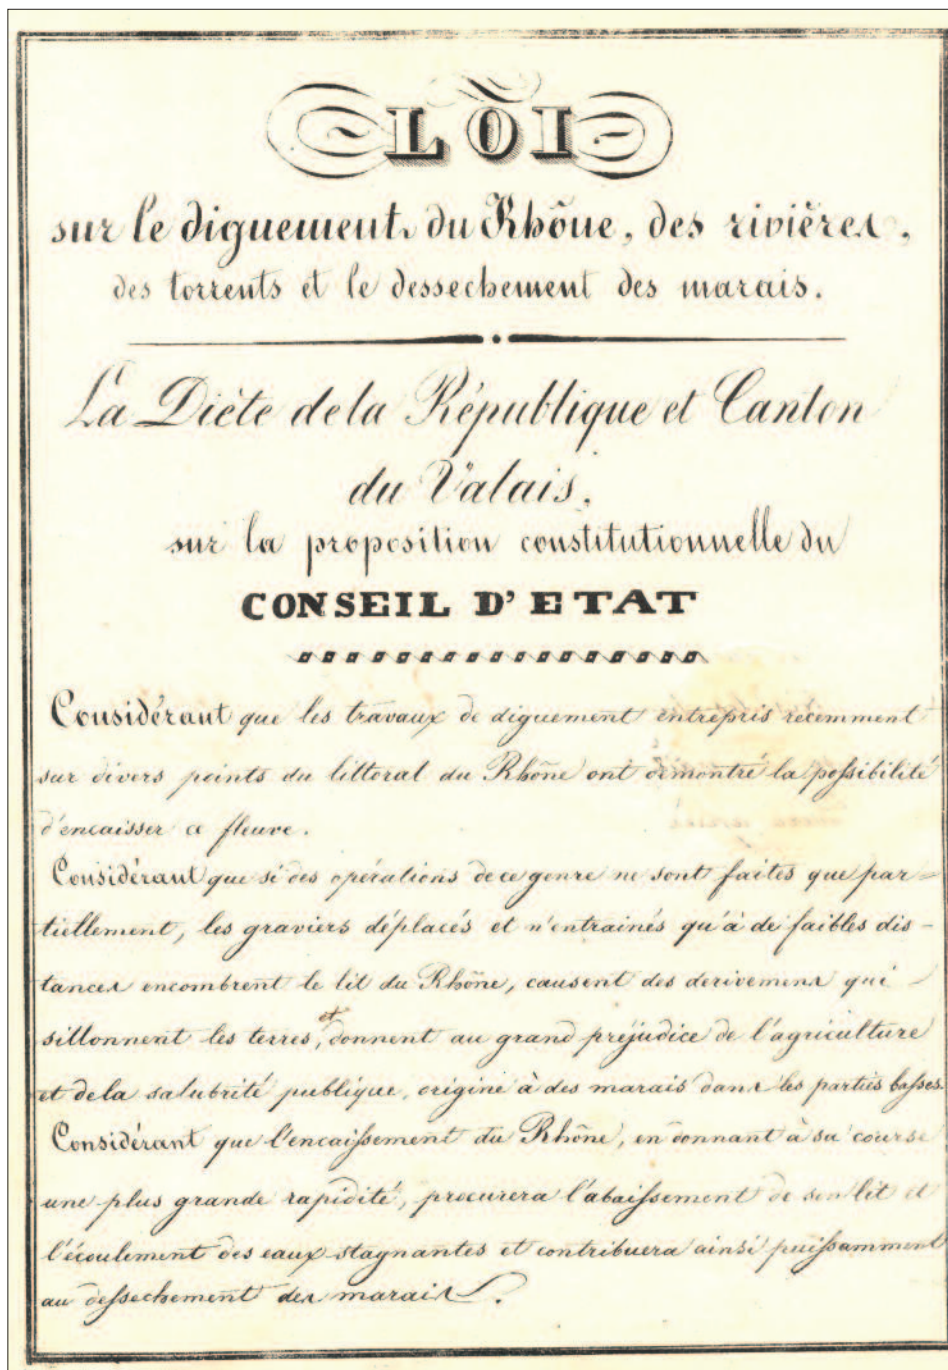 LOI
sur le diguement du Rhône, des rivières,
des torrents et le dessechement des marais.
La Diète de la République et Canton
du Valais,
sur la proposition constitutionnelle du
CONSEIL D'ETAT
Considérant que les travaux de diguement entrepris recemment
sur divers points du littoral du Rhône ont démontré la possibilité
d'encaisser ce fleuve.
Considérant que si des opérations de ce genre ne sont faites que par-
tiellement, les graviers déplacés et n'entrainés qu'à de faibles dis-
tances encombrent le lit du Rhône, causent des derivemens qui
sillonnent les terres, et donnent au grand préjudice de l'agriculture
et de la salubrité publique, origine à des marais dans les parties basses.
Considérant que l'encaissement du Rhône, en donnant à sa course
une plus grande rapidité, procurera l'abaissement de son lit et
l'écoulement des eaux stagnantes et contribuera ainsi puissamment
au dessechement des marais.